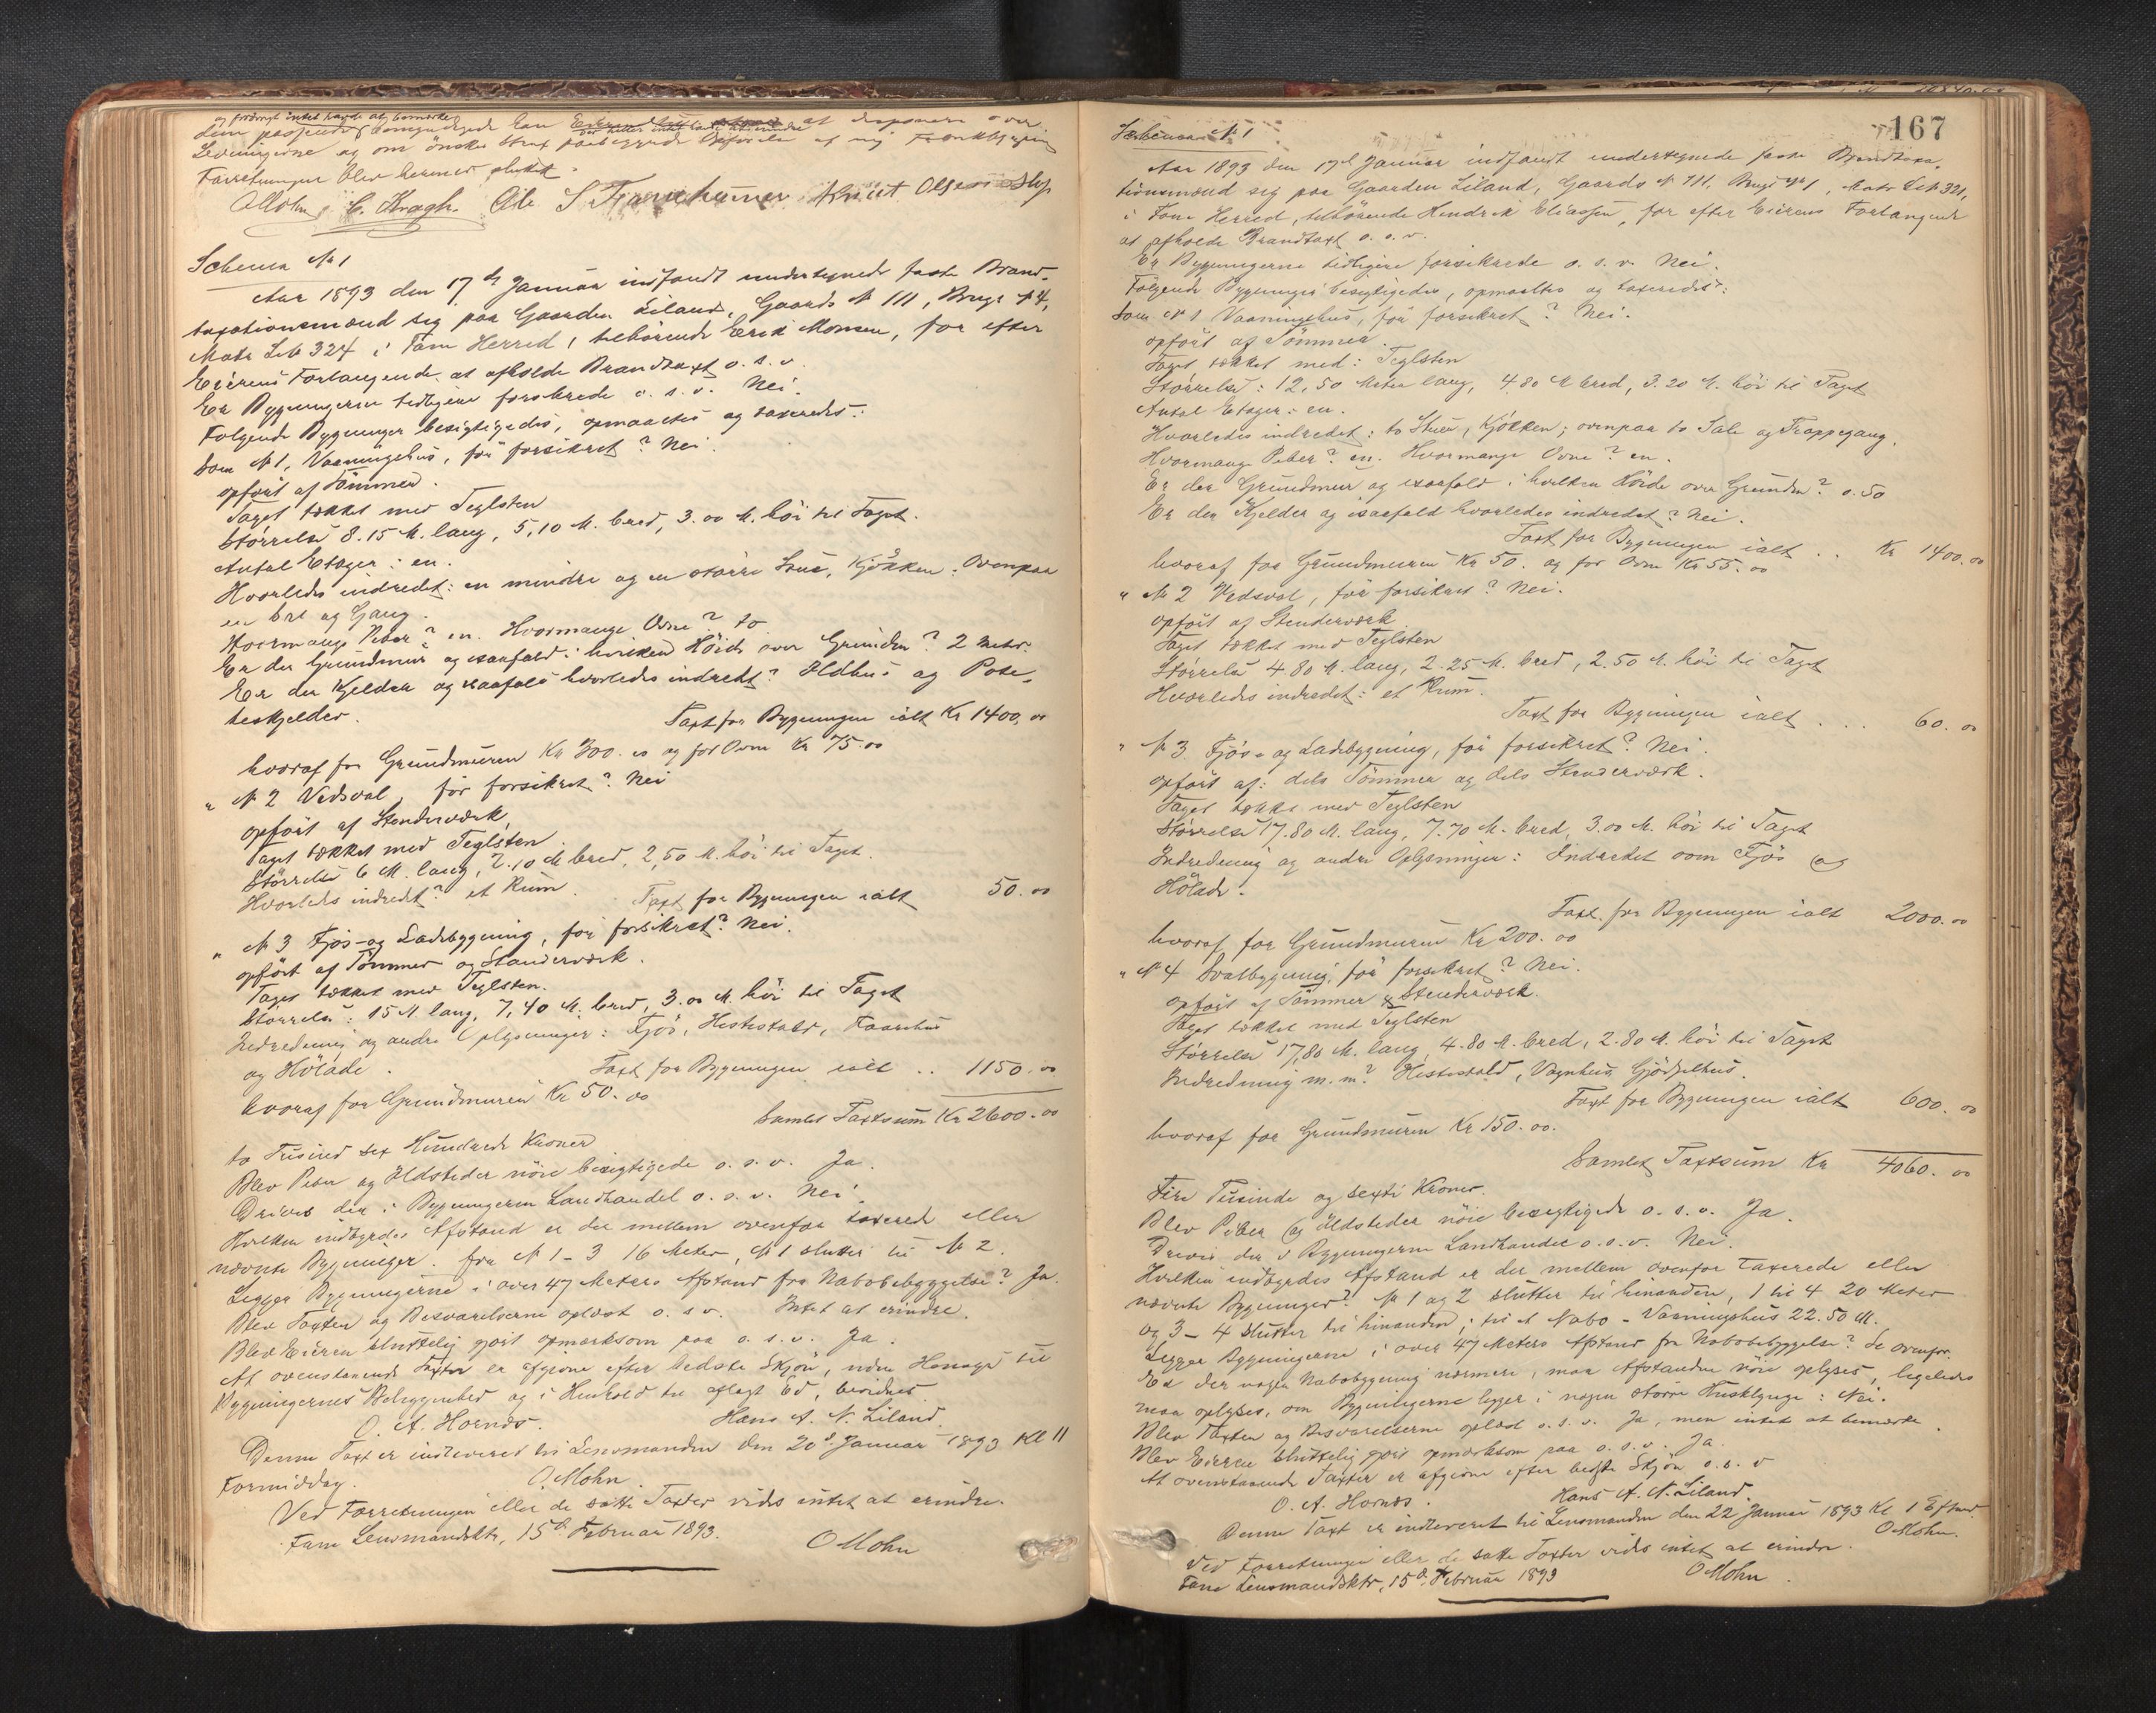 og forøvrigt intet havde at bemærke
som passende
der heller intet havde at erindre
Leveningerne og om ønskes strax paabegynde Opførelse af ny
Forretningen blev hermed sluttet.
OMohn C. Kragh. Ole S Arnut Olsen
Schema No 1
Aar 1893 den 17de Januar indfandt undertegnede faste Brand-
taxationsmænd sig paa Gaarden Liland, Gaards No 111, Brugs No 4,
Matr Lb 324 i Fane Herred, tilhørende Erik Monsen, for efter
Eierens Forlangende at afholde Brandtaxt o. s. v.
Er Bygningerne tidligere forsikrede o. s. v. Nei.
Følgende Bygninger besigtigedes, opmaaltes og taxeredes:
Som No 1, Vaaningshus, før forsikret? Nei.
opført af Tømmer.
Taget tækket med Teglsten
Størrelse 8.15 M. lang, 5,10 M. bred, 3.00 M. høi til Taget.
Antal Etager: en.
Hvorledes indredet: en mindre og en større Stue, Kjøkken. Ovenpaa
en Sal og Gang.
Hvormange Piber? en. Hvormange Ovne? to
Er der Grundmur og isaafald i hvilken Høide over Grunden? 2 Meter.
Er der Kjelder og isaafald hvorledes indredt? Ildhus og Pote-
teskjelder.
Taxt for Bygningen ialt Kr 1400.00
hvoraf for Grundmuren Kr 300.00 og for Ovne Kr 75.00
" No 2 Vedsval, før forsikret? Nei
opført af Stenderværk
Taget tækket med Teglsten
Størrelse 6 M. lang, 2.10 M bred, 2,50 M. høi til Taget.
Hvorledes indredet? et Rum.
Taxt for Bygningen ialt 50.00
" No 3 Fjøs- og Ladebygning, før forsikret? Nei.
opført af Tømmer og Stenderværk.
Taget tækket med Teglsten.
Størrelse: 15 M. lang, 7,40 M. bred, 3.00 M. høi til Taget
Indredning og andre Oplysninger: Fjøs, Hestestald, Faarehus
og Hølade.
Taxt for Bygningen ialt .. 1150.00
hvoraf for Grundmuren Kr 50.00
Samlet Taxtsum Kr 2600.00
to Tusind sex Hundrede Kroner
Blev Piber og Ildsteder nøie besigtigede o. s. v. Ja.
Drives der i Bygningerne Landhandel o. s. v. Nei.
Hvilken indbyrdes Afstand er der mellem ovenfor taxerede eller
nævnte Bygninger. fra No 1 - 3 16 Meter, No 1 slutter til No 2.
Ligger Bygningerne i over 47 Meters Afstand fra Nabobebyggelse? Ja.
Blev Taxten og Besvarelserne oplæst o. s. v. Intet at erindre.
Blev Eieren sluttelig gjort opmærksom paa o. s. v. Ja.
At ovenstaaende Taxter er afgivne efter bedste Skjøn, uden Hensyn til
Bygningernes Beliggenhed og i Henhold til aflagt Ed, bevidnes
O. A. Hornæs. Hans A. N. Liland.
Denne Taxt er indleveret til Lensmanden den 20de Januar 1893 Kl 11
Formiddag. O. Mohn
Ved Forretningen eller de satte Taxter vides intet at erindre.
Fane Lensmandsktr, 15de Februar 1893. OMohn
167
Schema No 1
Aar 1893 den 17de Januar indfandt undertegnede faste Brandtaxa-
tionsmænd sig paa Gaarden Liland, Gaards No 111, Brugs No 1, Matr Lb 321,
i Fane Herred, tilhørende Hendrik Eliassen, for efter Eierens Forlangende
at afholde Brandtaxt o. s. v.
Er Bygningerne tidligere forsikrede o. s. v. Nei.
Følgende Bygninger besigtigedes, opmaaltes og taxeredes:
Som No 1 Vaaningshus, før forsikret? Nei.
opført af Tømmer.
Taget tækket med: Teglsten
Størrelse: 12,50 Meter lang, 4.80 M bred, 3.20 M. høi til Taget
Antal Etager: en.
Hvorledes indredet: to Stuer, Kjøkken; ovenpaa to Sale og Trappegang.
Hvormange Piber? en. Hvormange Ovne? en.
Er der Grundmur og isaafald i hvilken Høide over Grunden? 0.50
Er der Kjelder og isaafald hvorledes indredet? Nei.
Taxt for Bygningen ialt .. Kr 1400.00
hvoraf for Grundmuren Kr 50. og for Ovne Kr 55.00
" No 2 Vedsval, før forsikret? Nei.
opført af Stenderværk
Taget tækket med Teglsten
Størrelse 4.80 M. lang, 2.25 M. bred, 2.50 M. høi til Taget
Hvorledes indredet: et Rum.
Taxt for Bygningen ialt ... 60.00
" No 3 Fjøs- og Ladebygning, før forsikret? Nei.
opført af: dels Tømmer og dels Stenderværk.
Taget tækket med Teglsten
Størrelse 17.80 M. lang, 7.70 M. bred, 3.00 M. høi til Taget
Indredning og andre Oplysninger: Indredet som Fjøs og
Hølade.
Taxt for Bygningen ialt 2000.00
hvoraf for Grundmuren Kr 200.00
" No 4 Svalbygning, før forsikret? Nei.
opført af Tømmer & Stenderværk.
Taget tækket med Teglsten
Størrelse 17,80 M. lang, 4.80 M. bred, 2.80 M. høi til Taget
Indredning m. m.? Hestestald, Vognhus, Gjødselhus.
Taxt for Bygningen ialt 600.00
hvoraf for Grundmuren Kr 150.00.
Samlet Taxtsum Kr 4060.00
Fire Tusinde og sexti Kroner.
Blev Piber og Ildsteder nøie besigtigede o. s. v. Ja.
Drives der i Bygningerne Landhandel o. s. v. Nei.
Hvilken indbyrdes Afstand er der mellem ovenfor taxerede eller
nævnte Bygninger? No 1 og 2 slutter til hinanden, 1 til 4 20 Meter
og 3 - 4 slutter til hinanden; til et Nabo-Vaaningshus 22.50 M.
Ligger Bygningerne i over 47 Meters Afstand fra Nabobebyggelse? Se ovenfor.
Er der nogen Nabobygning nærmere, maa Afstanden nøie oplyses, ligeledes
maa oplyses, om Bygningerne ligger i nogen større Husklynge: Nei.
Blev Taxten og Besvarelserne oplæst o. s. v. Ja, men intet at bemærke.
Blev Eieren sluttelig gjort opmærksom paa o. s. v. Ja.
At ovenstaaende Taxter er afgivne efter bedste Skjøn o. s. v
O. A. Hornæs. Hans A. N. Liland
Denne Taxt er indleveret til Lensmanden den 22 Januar 1893 Kl 1 Efterm.
OMohn.
Ved Forretningen eller de satte Taxter vides intet at erindre.
Fane Lensmandsktr, 15de Februar 1893 OMohn.